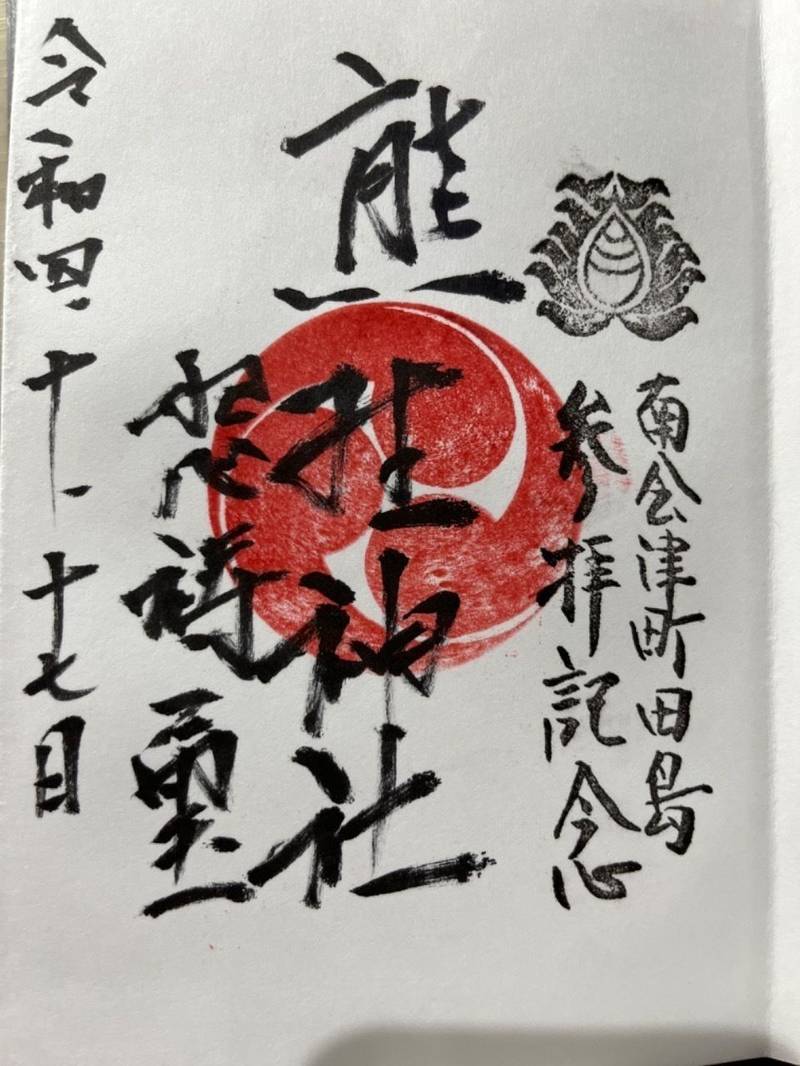 南会津町田島
参拝記念
熊野神社
令和四、十、十七日